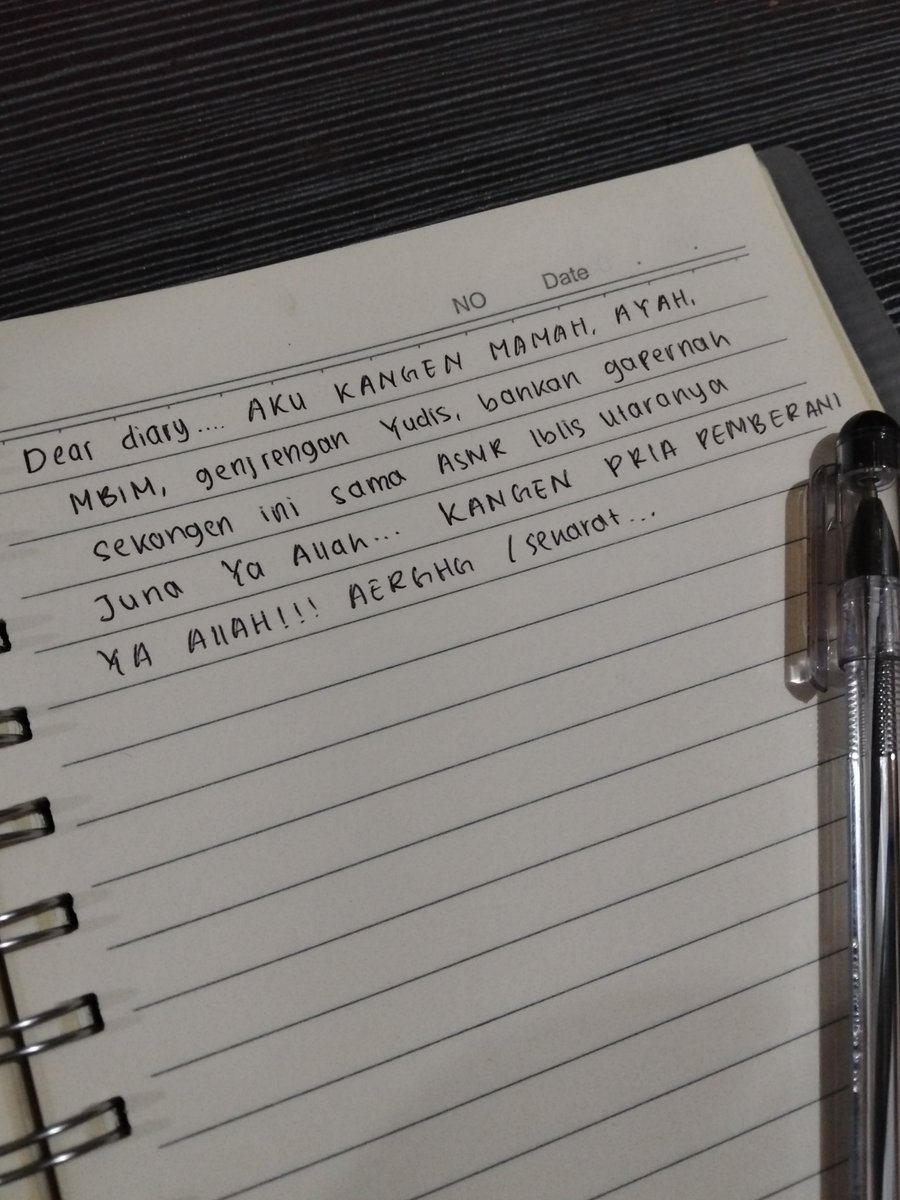 NO Date
Dear diary.... AKU KANGEN MAMAH, AYAH,
MBIM, genjrengan Yudis, bahkan gapernah
sekangen ini sama ASMR Iblis Utaranya
Juna Ya Allah... KANGEN PRIA PEMBERANI
YA AllAH!!! AERGHG (sekarat...